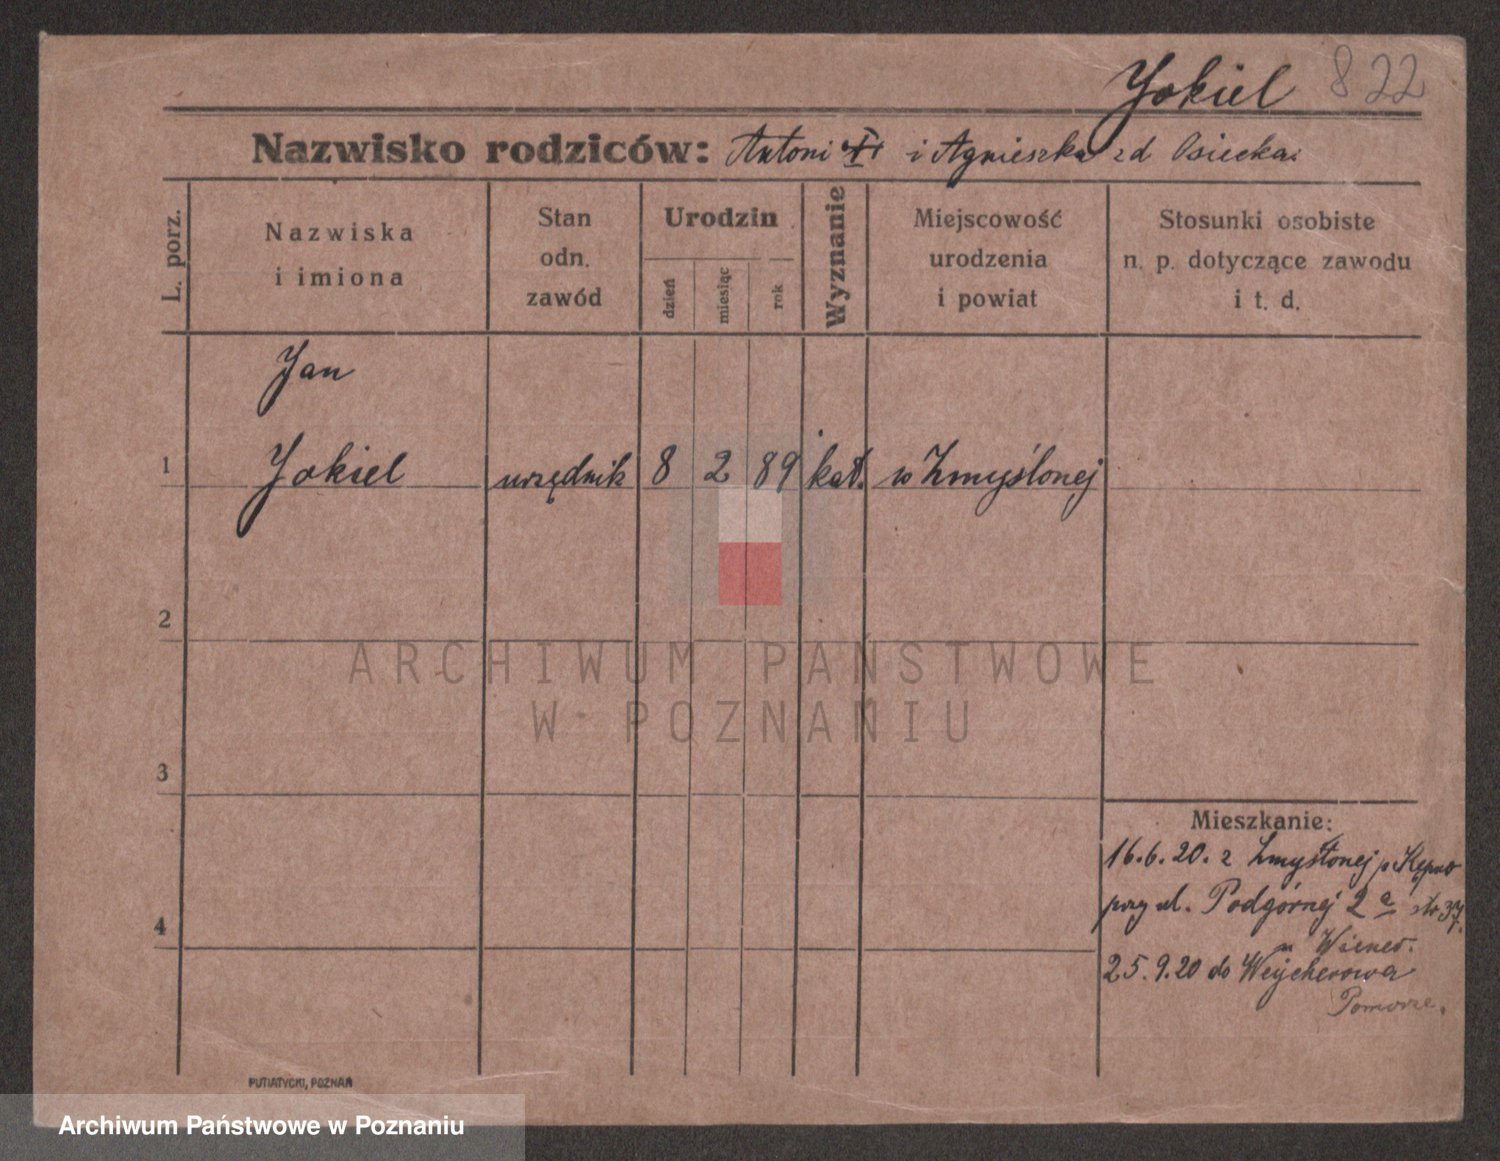 Jokiel 822
Nazwisko rodziców: Antoni i Agnieszka zd Osiecka
L. porz.
Nazwiska
i imiona
Stan
odn.
zawód
Urodzin
dzień
miesiąc
rok
Wyznanie
Miejscowość
urodzenia
i powiat
Stosunki osobiste
n. p. dotyczące zawodu
i t. d.
Jan
1 Jokiel urzędnik 8 2 89 kat. w Zmyślonej
2
ARCHIWUM PAŃSTWOWE
W POZNANIU
3
Mieszkanie:
16.6.20. z Zmyślonej p. Kępno
przy ul. Podgórnej 2a
4
25.9.20 do Wejcherowa
Pomorze.
PUTIATYCKI, POZNAŃ
Archiwum Państwowe w Poznaniu